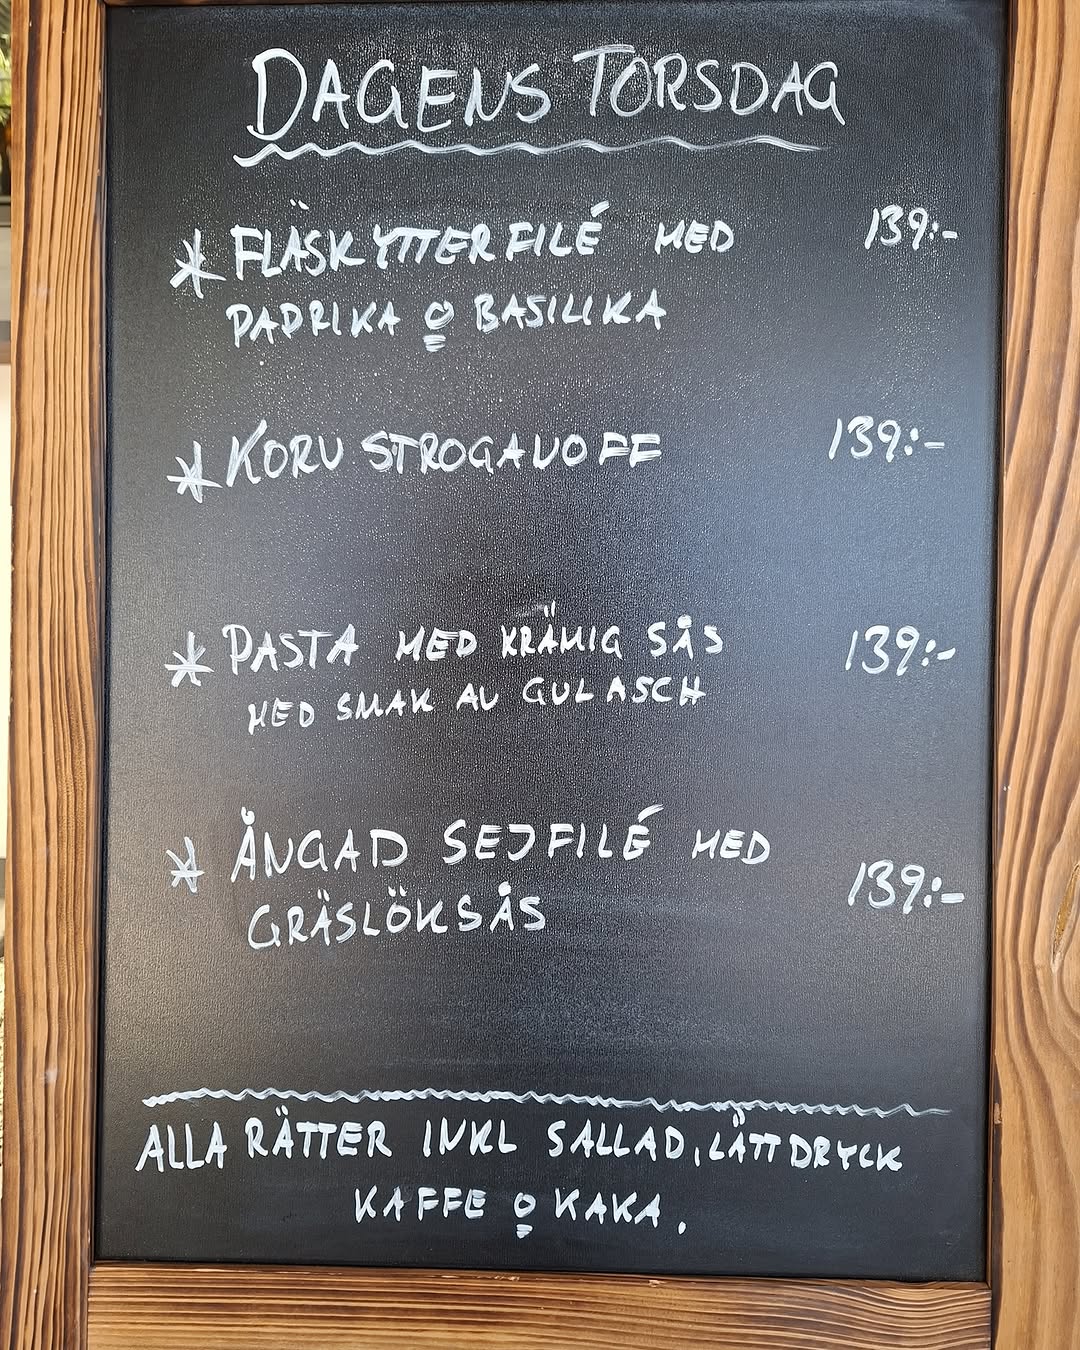 DAGENS TORSDAG
* FLÄSKYTTERFILÉ MED 139:-
PAPRIKA & BASILIKA
* KORV STROGANOFF 139:-
* PASTA MED KRÄMIG SÅS 139:-
MED SMAK AV GULASCH
* ÅNGAD SEJFILÉ MED
GRÄSLÖKSÅS 139:-
ALLA RÄTTER INKL SALLAD, LÄTTDRYCK
KAFFE & KAKA.